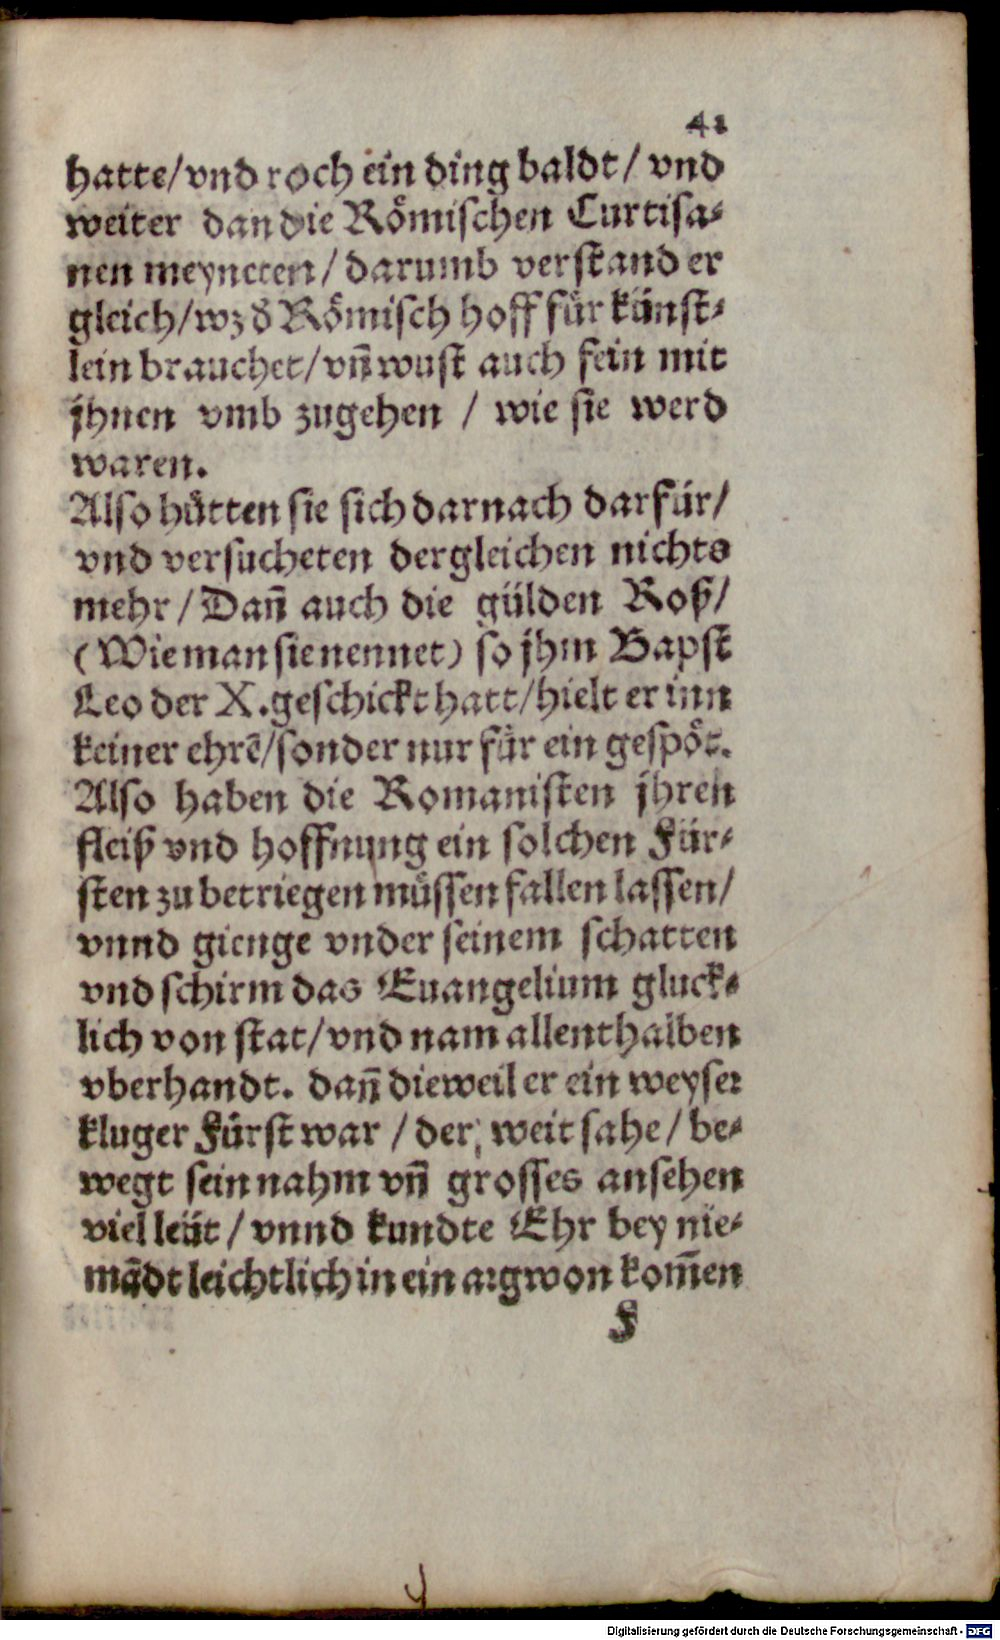 41
hatte/vnd roch ein ding baldt/ vnd
weiter dan die Roͤmischen Curtisa⸗
nen meyneten/ darumb verstand er
gleich/wz d̕ Roͤmisch hoff fuͤr kuͤnst⸗
lein brauchet/vñ wust auch fein mit
jhnen vmb zugehen / wie sie werd
waren.
Also huͤtten sie sich darnach darfuͤr/
vnd versucheten dergleichen nichts
mehr/Dañ auch die guͤlden Roß/
(Wie man sie nennet) so jhm Bapst
Leo der X.geschickt hatt/hielt er inn
keiner ehrē/sonder nur fuͤr ein gespoͤt.
Also haben die Romanisten jhren
fleiß vnd hoffnung ein solchen Fuͤr⸗
sten zu betriegen muͤssen fallen lassen/
vnnd gienge vnder seinem schatten
vnd schirm das Euangelium gluck⸗
lich von stat/vnd nam allenthalben
vberhandt. dañ dieweil er ein weyser
kluger Fuͤrst war / der, weit sahe/ be⸗
wegt sein nahm vñ grosses ansehen
viel leuͤt / vnnd kundte Ehr bey nie⸗
mãdt leichtlich in ein argwon kom̃en
F
Digitalisierung gefördert durch die Deutsche Forschungsgemeinschaft - DFG